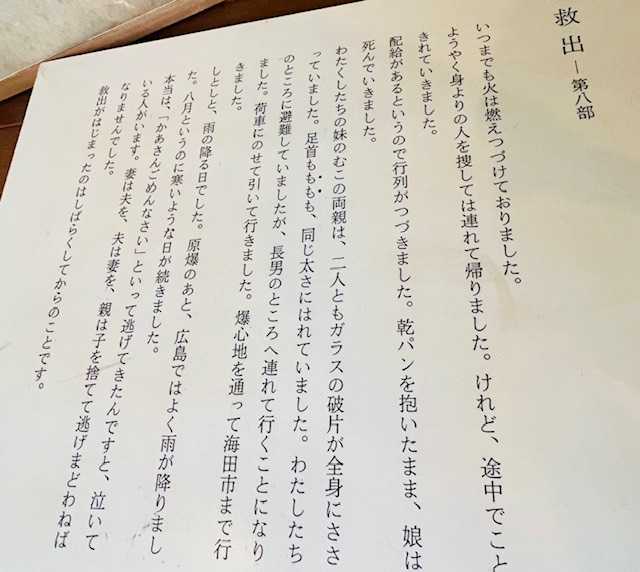 救出 ― 第八部
いつまでも火は燃えつづけておりました。
ようやく身よりの人を捜しては連れて帰りました。けれど、途中でこと
きれていきました。
配給があるというので行列がつづきました。乾パンを抱いたまま、娘は
死んでいきました。
わたくしたちの妹のむこの両親は、二人ともガラスの破片が全身にささ
っていました。足首もももも、同じ太さにはれていました。わたしたち
のところに避難していましたが、長男のところへ連れて行くことになり
ました。荷車にのせて引いて行きました。爆心地を通って海田市まで行
きました。
しとしと、雨の降る日でした。原爆のあと、広島ではよく雨が降りまし
た。八月というのに寒いような日が続きました。
本当は、「かあさんごめんなさい」といって逃げてきたんですと、泣いて
いる人がいます。妻は夫を、夫は妻を、親は子を捨てて逃げまどわねば
なりませんでした。
救出がはじまったのはしばらくしてからのことです。